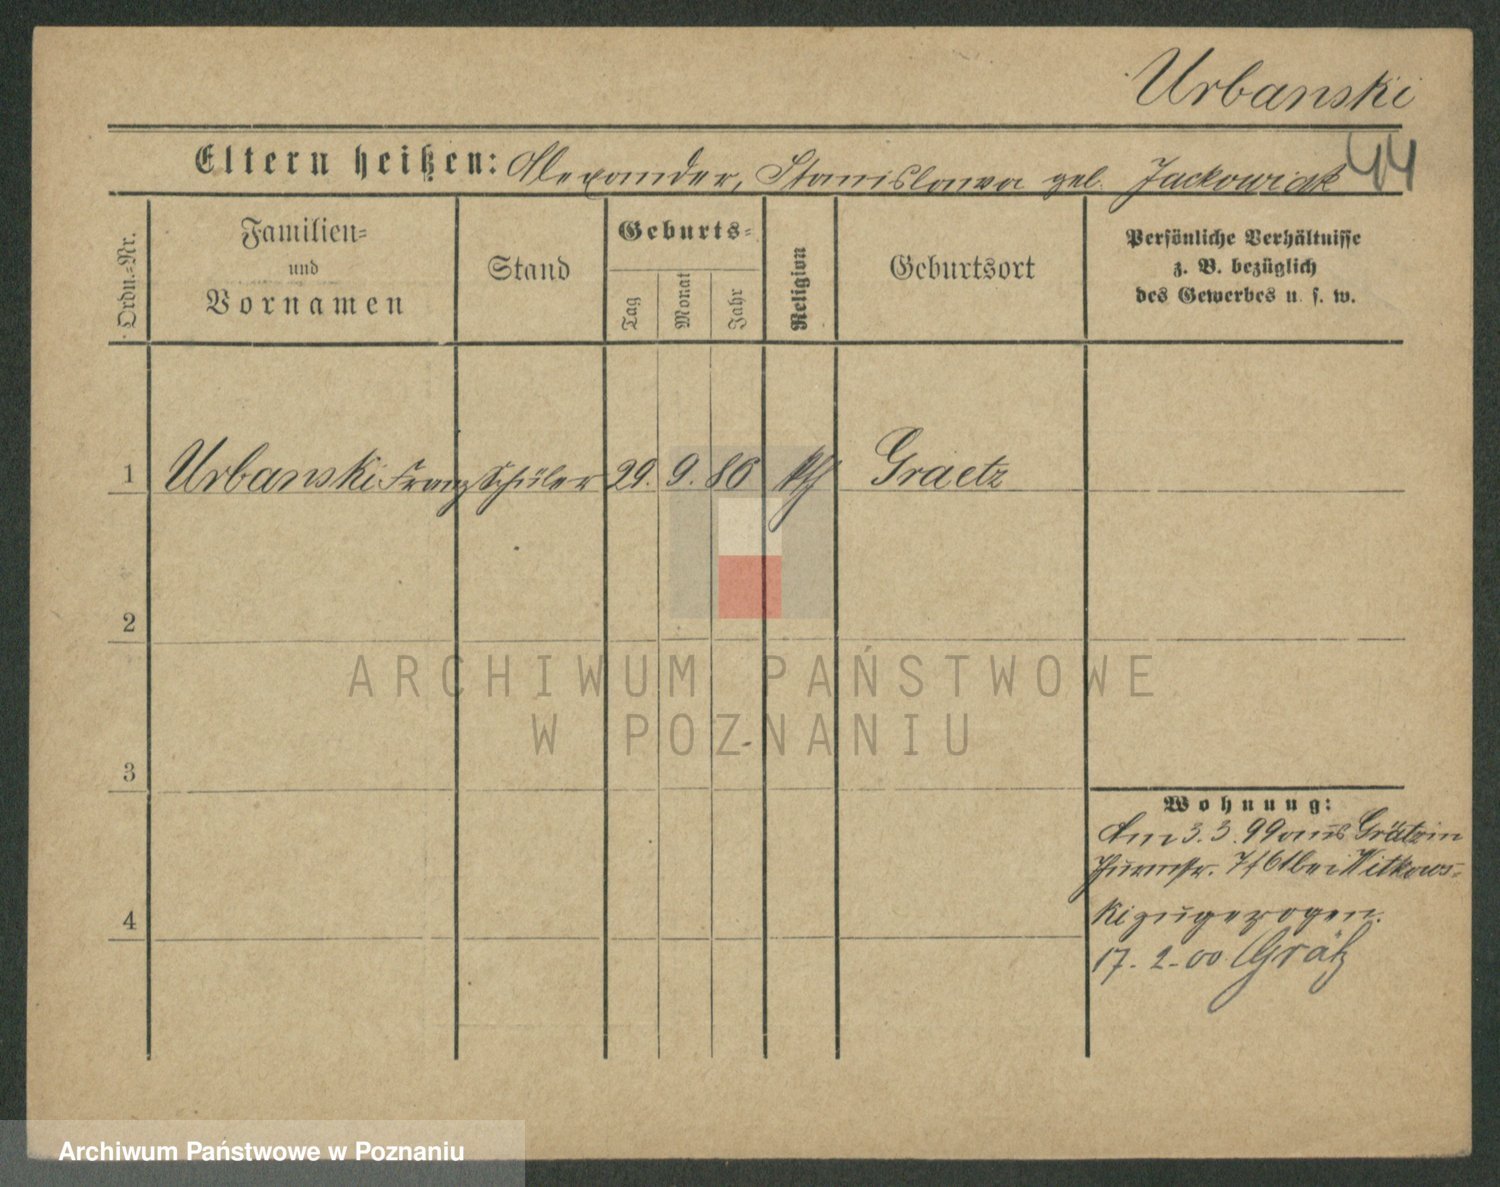 Urbanski
44
Eltern heißen: Alexander, Stanislawa geb. Jackowiak
Ordn.-Nr.
Familien-
und
Vornamen
Stand
Geburts-
Tag
Monat
Jahr
Religion
Geburtsort
Persönliche Verhältnisse
z. B. bezüglich
des Gewerbes u. s. w.
1 Urbanski Franz Schüler 29. 9. 86 kth Graetz
2
3
4
Wohnung:
Am 3.3.99 aus Grätz in
Thurmstr. 7/61 bei Witkows-
ki zugezogen.
17. 2. 00 Grätz
ARCHIWUM PAŃSTWOWE
W POZNANIU
Archiwum Państwowe w Poznaniu